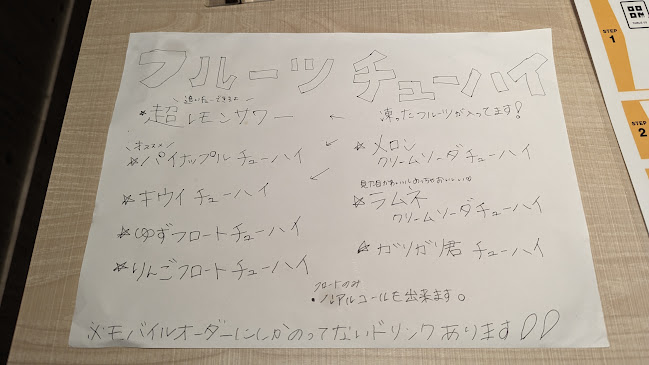 フルーツ チューハイ
追いたしできるよ
☆超レモンサワー ← 凍ったフルーツが入ってます!
オススメ
☆パイナップルチューハイ
☆キウイチューハイ
☆ゆずフロートチューハイ
☆りんごフロートチューハイ
☆メロン
クリームソーダチューハイ
☆ラムネ
クリームソーダチューハイ
☆ガリガリ君チューハイ
フロートのみ
・ノンアルコールも出来ます。
※モバイルオーダーにしかのってないドリンクあります
STEP
1
STEP
2